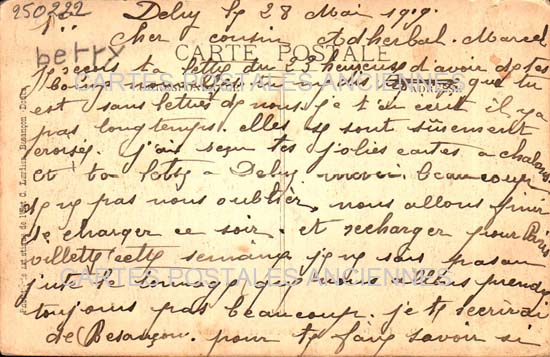 250222
Deluz le 28 Mai 1919.
berry
Cher cousin Adherbal. Marcel
CARTE POSTALE
Je reçois ta lettre du 23 heureux d'avoir de tes
CARTES POSTALES ANCIENNES
bonne que tu
ADRESSE
est sans lettres de nous, je t'en ecrit il y a
pas longtemps. elles se sont sûrement
croisés. j'ai reçu tes jolies cartes a chalons
et ta lettre a Deluz merci beaucoup
de ne pas nous oublier, nous allons finir
de charger ce soir. et recharger pour Paris
villette cette semaine je ne sais pas au
CARTES POSTALES ANCIENNES
juste le tonnage que nous allons prendre
toujours pas beaucoup. je te recrirai
de Besançon. pour te faire savoir si
C. Lardier, Besançon (Doubs)